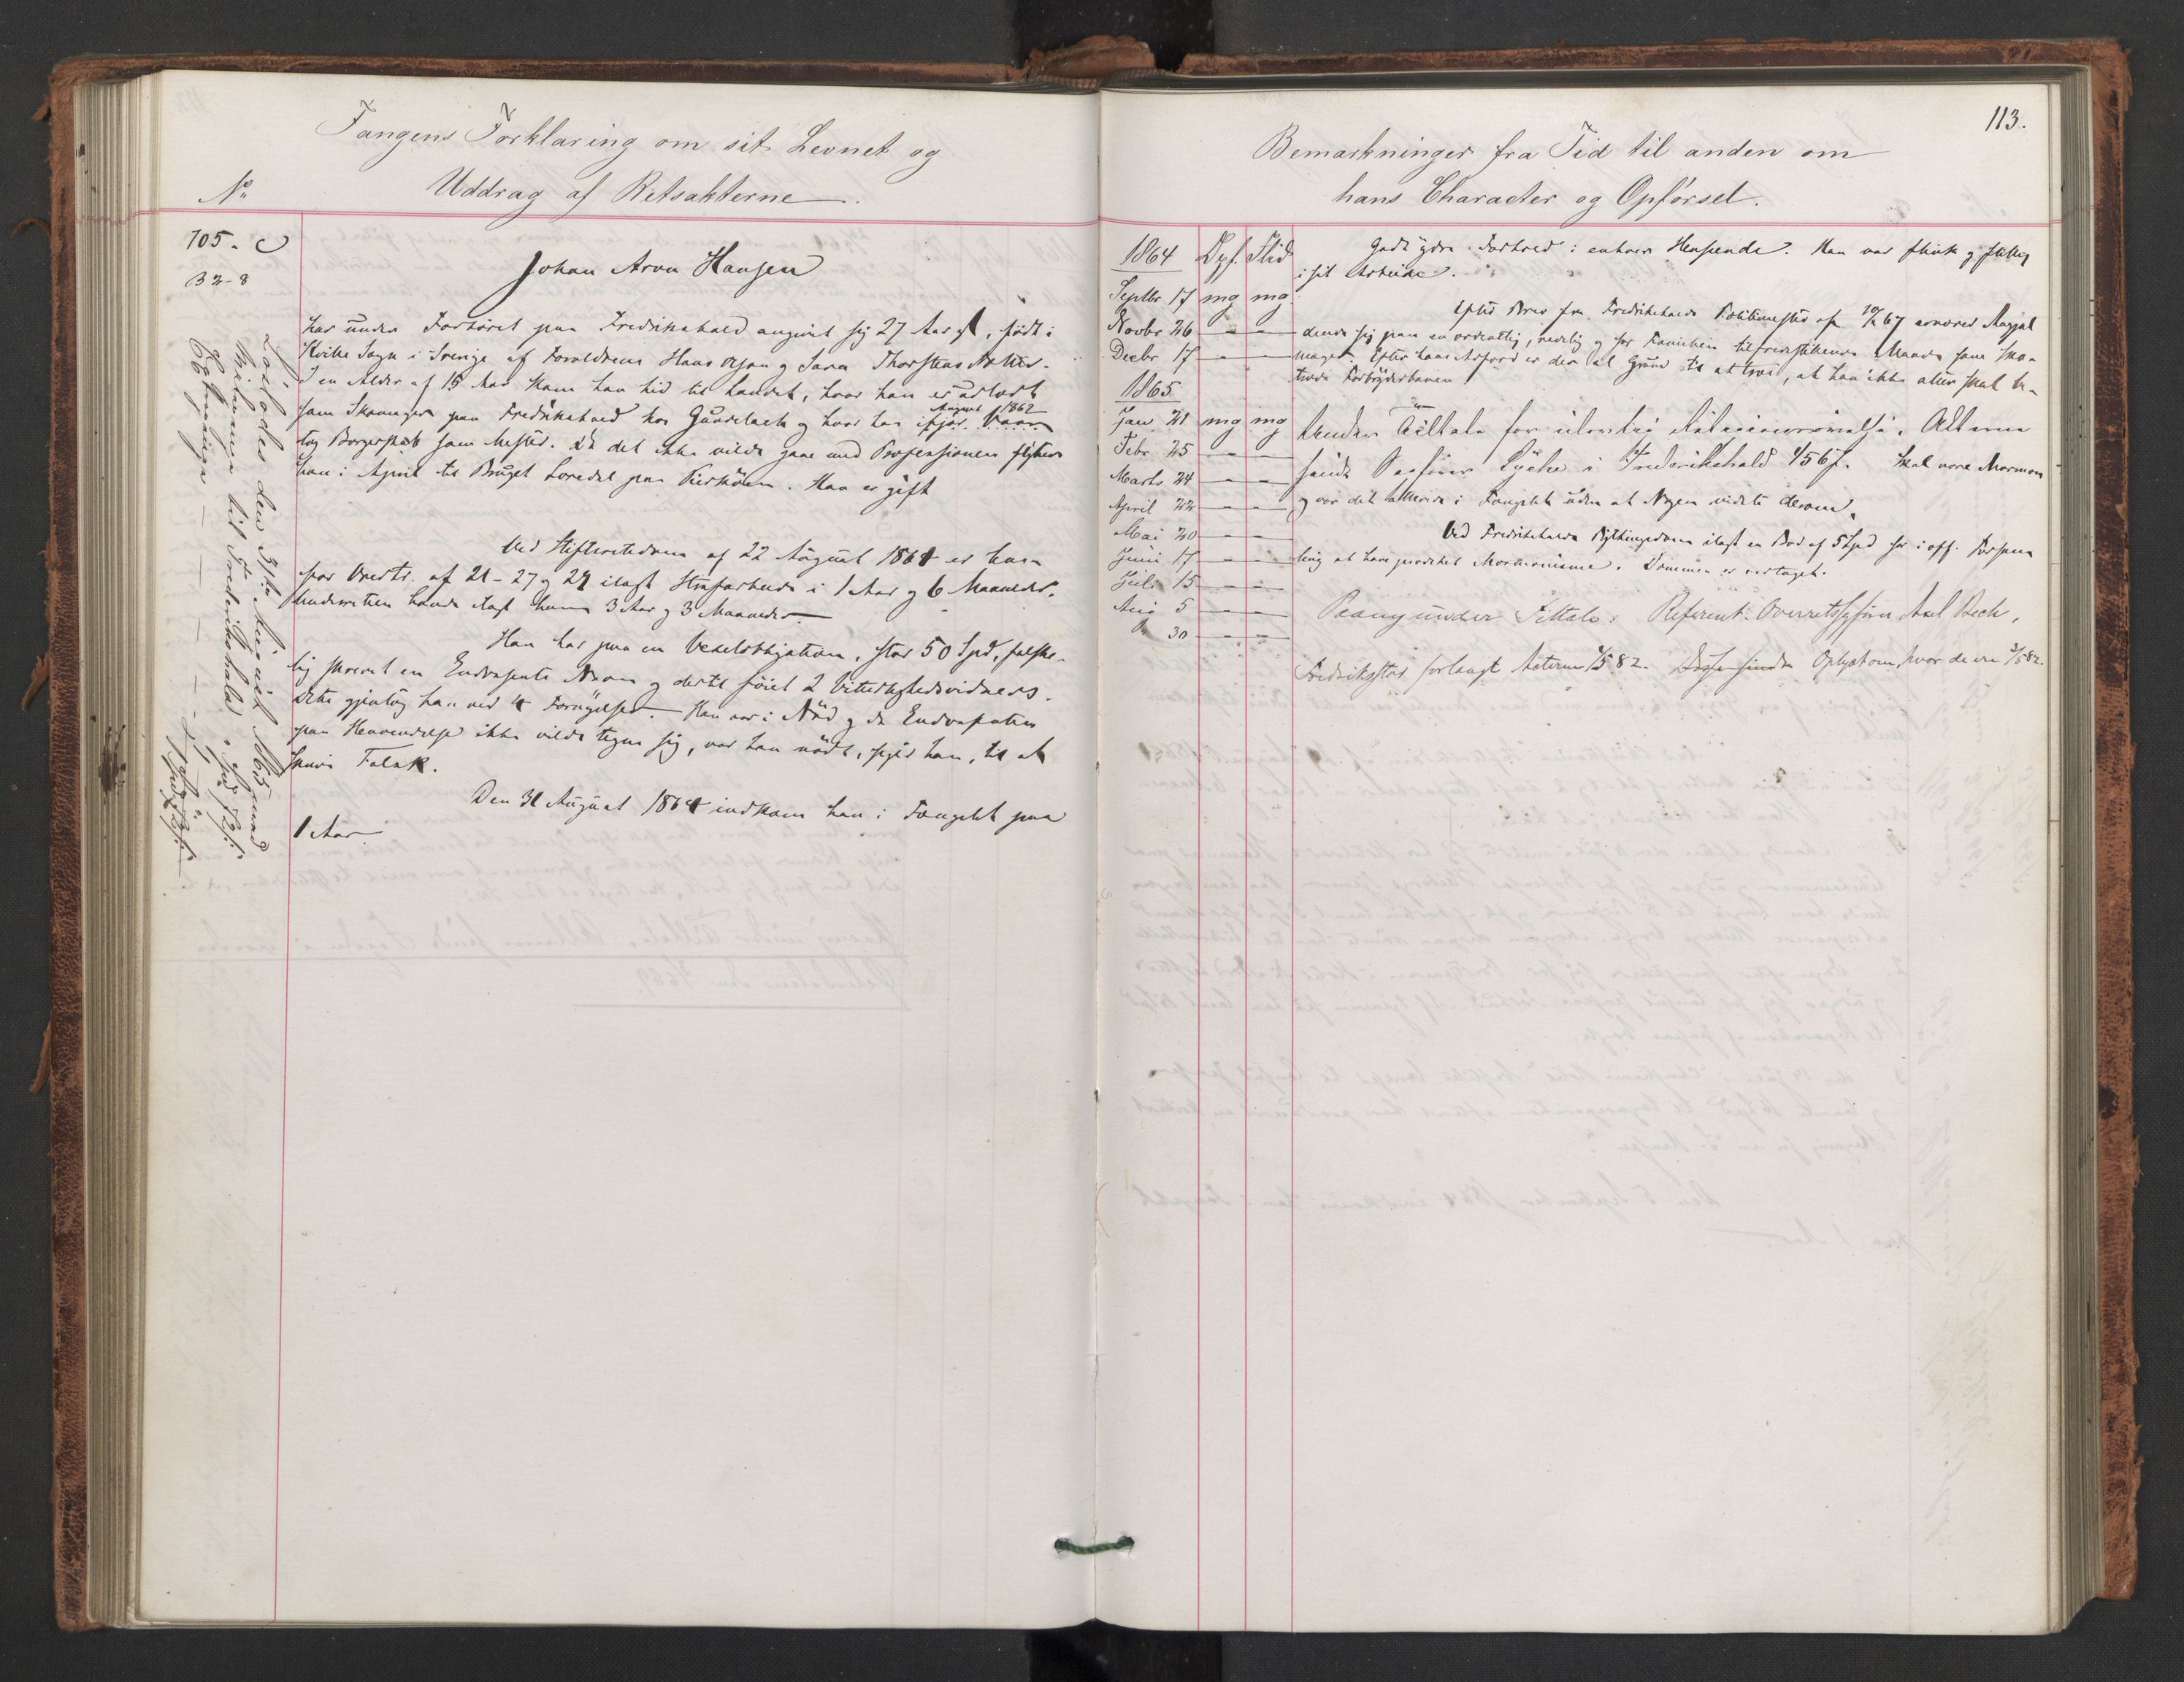 Fangens Forklaring om sit Levnet og
Uddrag af Retsakterne
No
105. C
B 2-8
Johan Aron Hansen
har under Forhøret paa Fredrikshald angivet sig 27 Aar gl, født i
Sogn i Sverige af Forældrene Hans og Sara Thorstens Datter.
I en Alder af 15 Aar kom han hid til Landet, hvor han er udlært
som Skomager paa Fredrikshald hos Gundelach og hvor han ifjor Vaar
August 1862
tog Borgerskab som Mester. Da det ikke vilde gaae med Professionen flyttede
han i April til Bruget Loredal paa Kirkøen. Han er gift
Ved Stiftsretsdom af 22 August 1864 er han
for Overtr. af 21-27 og 29 ilagt Strafarbeide i 1 Aar og 6 Maaneder.
Underretten havde ilagt ham 3 Aar og 3 Maaneder
Han har paa en Vexelobligation, stor 50 Spd, falske-
lig skrevet en Endossents Navn og dertil føiet 2 Vitterlighedsvidners.
Dette gjentog han ved 4 Fornyelser. Han var i Nød og da Endossenten
paa Henvendelse ikke vilde tegne sig, var han nødt, siger han, til at
skrive Falsk.
Den 31 August 1864 indkom han i Fængslet paa
1 Aar
Løslades den 31te August 1865 mod
til Frederikshald
113.
Bemærkninger fra Tid til anden om
hans Character og Opførsel.
1864 Opf. Flid
Septbr 17 mg mg
Novbr 26 - -
Decbr 17 - -
1865
Jan 21 mg mg
Febr 25 - -
Marts 24 - -
April 22 - -
Mai 20 - -
Juni 17 - -
Juli 15 - -
Aug 5 - -
30 - -
Godt Forhold i enhver Henseende. Han var flink og flittig
i sit Arbeide.
Efter Brev fra Fredrikshalds Politimester af 67 ernærer Angjæl
dende sig paa en ordentlig, redelig og for Familien tilfredsstillende Maade som Sko-
mager. Efter hans Adfærd er der al Grund til at troe, at han ikke atter skal be-
træde Forbryderbanen
Under Tiltale for ulovlig Religionsøvelse. Akterne
sendt Sagfører Lyche i Frederikshald 67. Skal være Mormon
og var det allerede i Fængslet uden at Nogen vidste derom.
Ved Fredrikshalds Bythingsdom ilagt en Bod af 5 Spd for i off. Forsam
ling at have prædiket Mormonisme. Dommen er vedtaget.
Paany under Tiltale. Referent: Overretssagfører Axel Bech,
Fredrikstad forlangt Acterne 82. Oplyst om, hvor de ere 82.